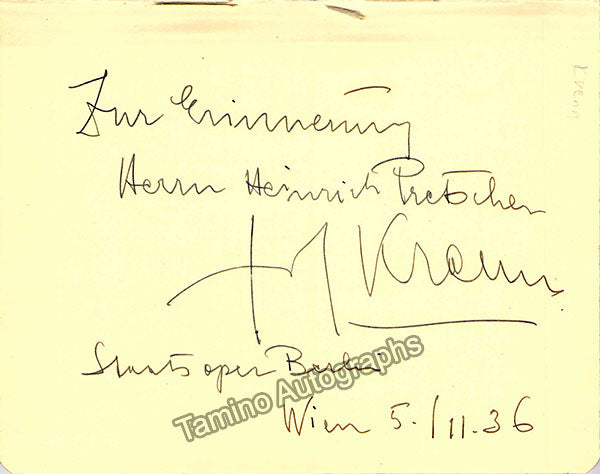 Zur Erinnerung
Herrn Heinrich Pretscher
Krenn
Krenn
Staatsoper Berlin
Tamino Autographs
Wien 5./11.36